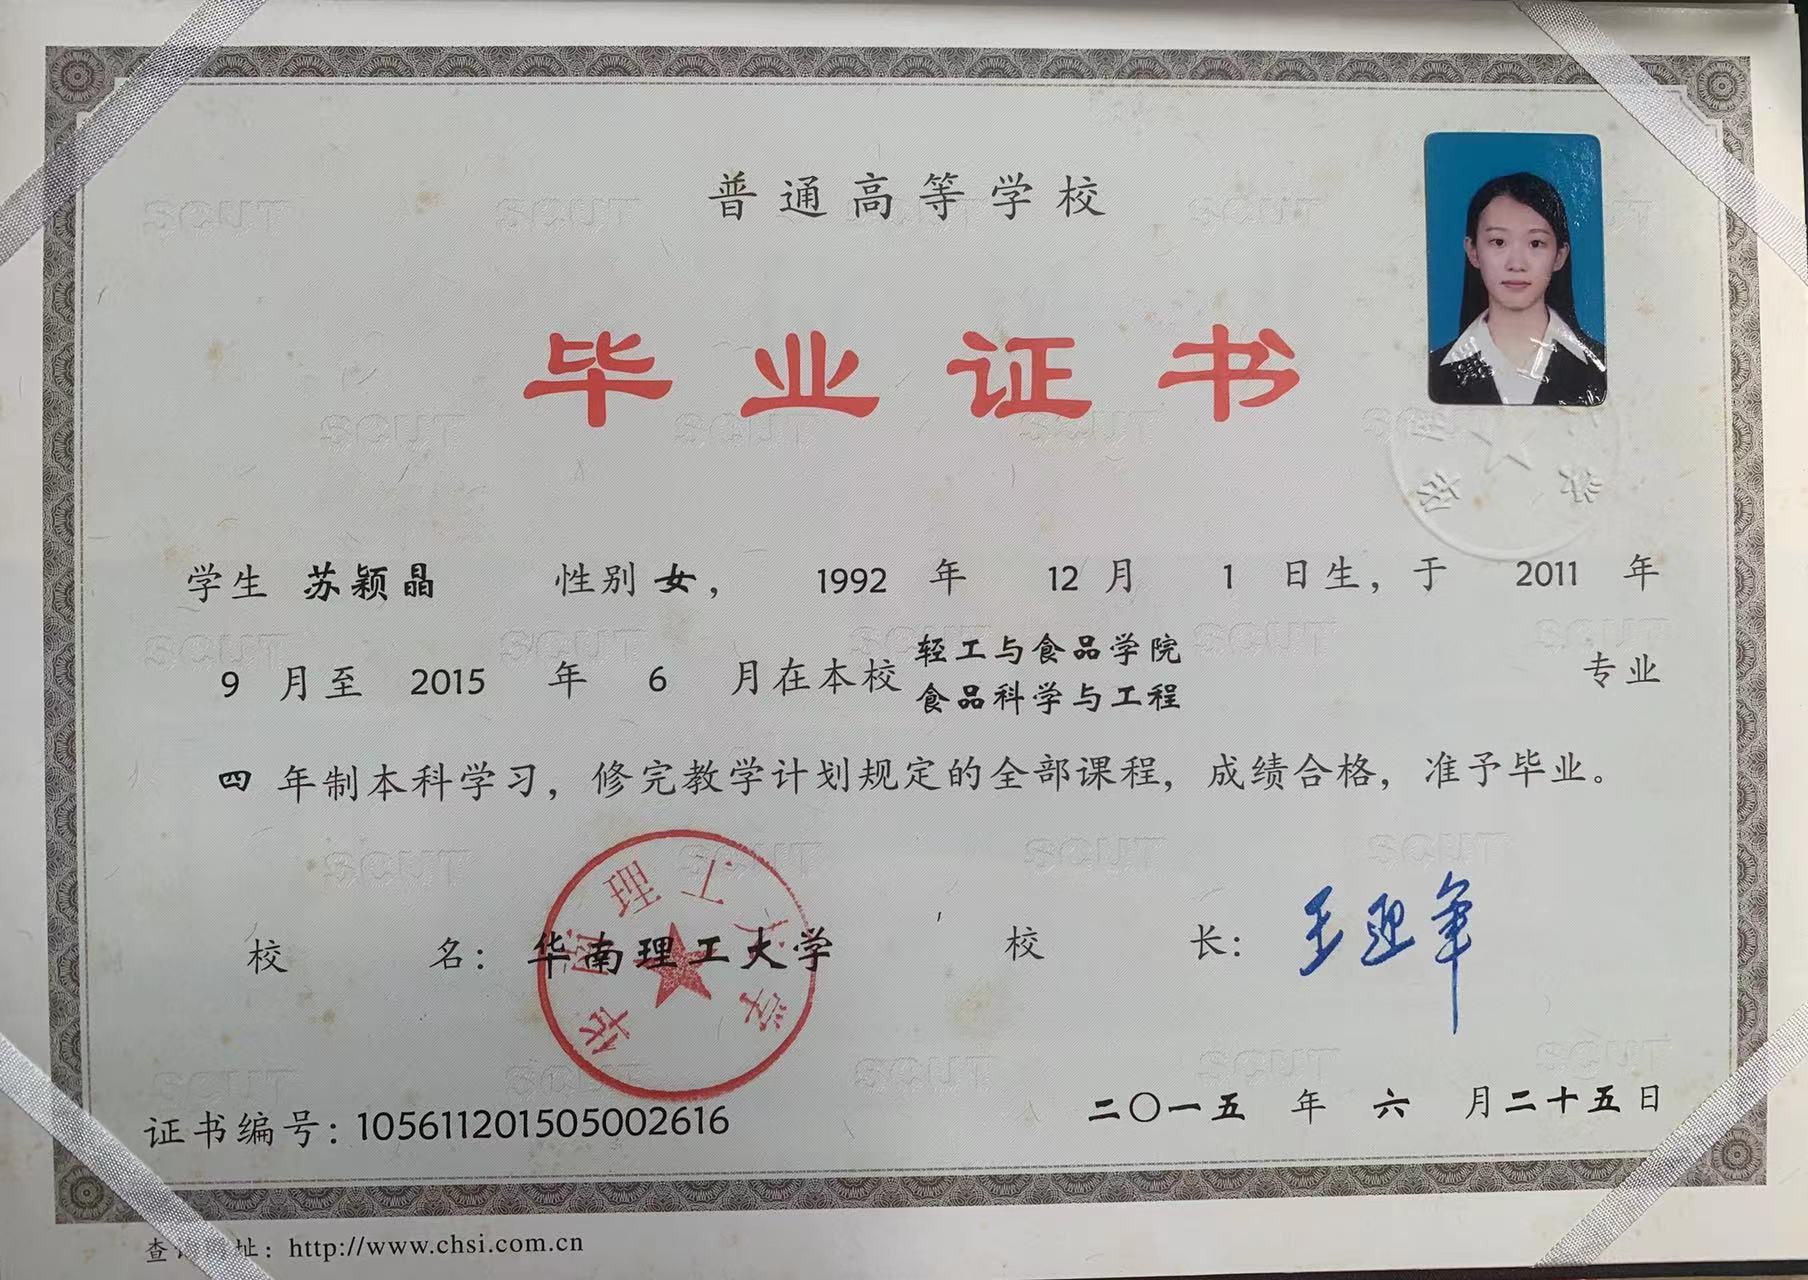 普通高等学校
毕业证书
学生 苏颖晶 性别 女， 1992 年 12 月 1 日生，于 2011 年
9 月至 2015 年 6 月在本校 轻工与食品学院
食品科学与工程 专业
四 年制本科学习，修完教学计划规定的全部课程，成绩合格，准予毕业。
校 名：华南理工大学 校 长：王迎军
华南理工大学
证书编号：105611201505002616
二〇一五 年 六 月二十五日
查 址：http://www.chsi.com.cn
SCUT SCUT SCUT SCUT
SCUT SCUT SCUT SCUT
SCUT SCUT SCUT SCUT SCUT
SCUT SCUT SCUT SCUT
SCUT SCUT SCUT SCUT SCUT